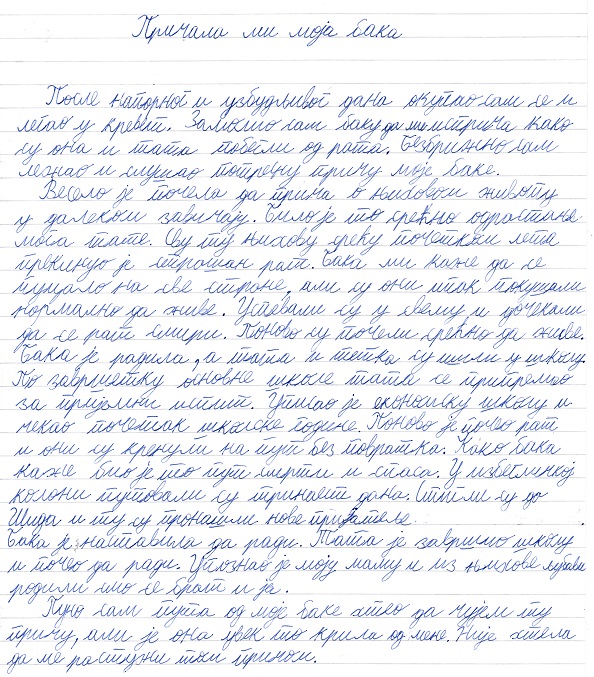 Причала ми моја бака
После напорног и узбудљивог дана окупао сам се и
легао у кревет. Замолио сам баку да ми исприча како
су она и тата побегли од рата. Безбрижно сам
лежао и слушао потресну причу моје баке.
Весело је почела да прича о њиховом животу
у далеком завичају. Било је то срећно одрастање
мога тате. Сву ту њихову срећу почетком лета
прекинуо је страшан рат. Бака ми каже да се
пуцало на све стране, али су они ипак покушали
нормално да живе. Успевали су у свему и дочекали
да се рат смири. Поново су почели срећно да живе.
Бака је радила, а тата и тетка су ишли у школу.
По завршетку основне школе тата се припремао
за пријемни испит. Уписао је економску школу и
чекао почетак школске године. Поново је почео рат
и они су кренули на пут без повратка. Како бака
каже био је то пут смрти и спаса. У избегличкој
колони путовали су тринаест дана. Стигли су до
Шида и ту су пронашли нове пријатеље.
Бака је наставила да ради. Тата је завршио школу
и почео да ради. Упознао је моју маму и из њихове љубави
родили смо се брат и ја.
Пуно сам пута од моје баке хтео да чујем ту
причу, али је она увек то крила од мене. Није хтела
да ме растужи том причом.